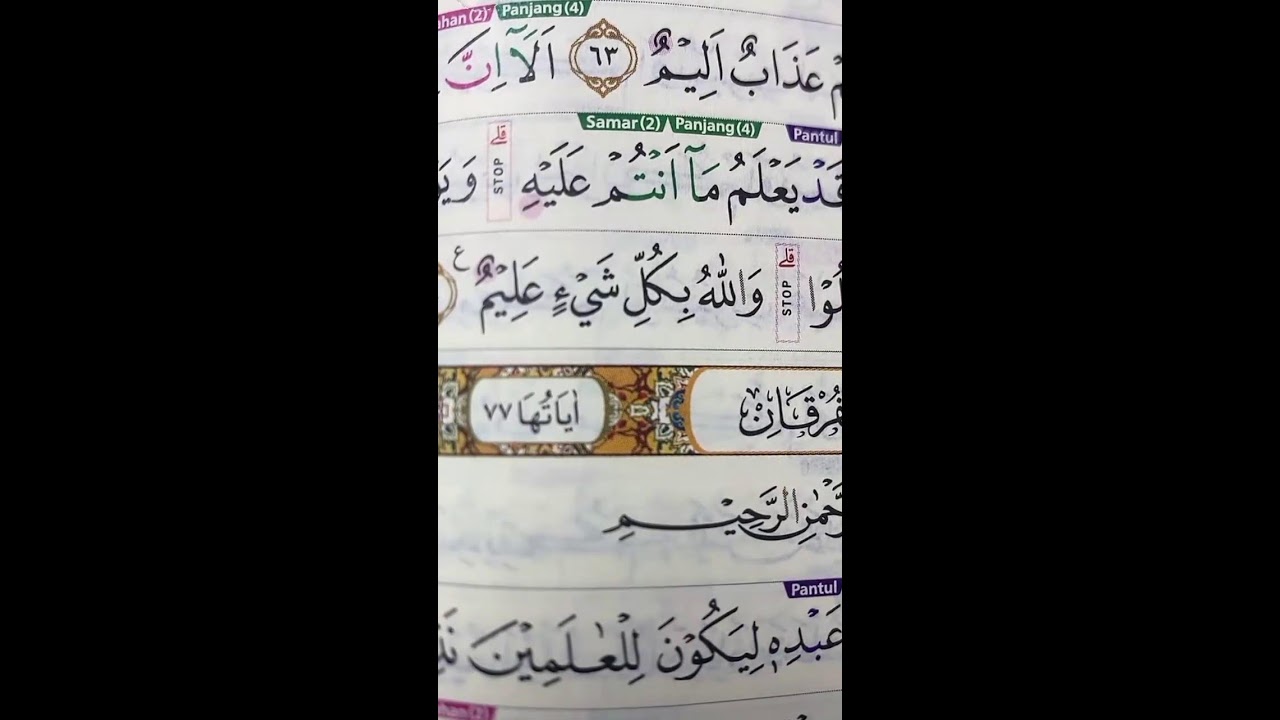 Panjang (4)
عَذَابٌ اَلِيْمٌ ٦٣ اَلَآ اِنَّ
Samar (2) Panjang (4) Pantul
قَدْ يَعْلَمُ مَآ اَنْتُمْ عَلَيْهِ ۗ STOP
ۗ STOP وَاللّٰهُ بِكُلِّ شَيْءٍ عَلِيْمٌ ع
اٰيَاتُهَا ٧٧
الرَّحِيْمِ
Pantul
عَبْدِهٖ لِيَكُوْنَ لِلْعٰلَمِيْنَ